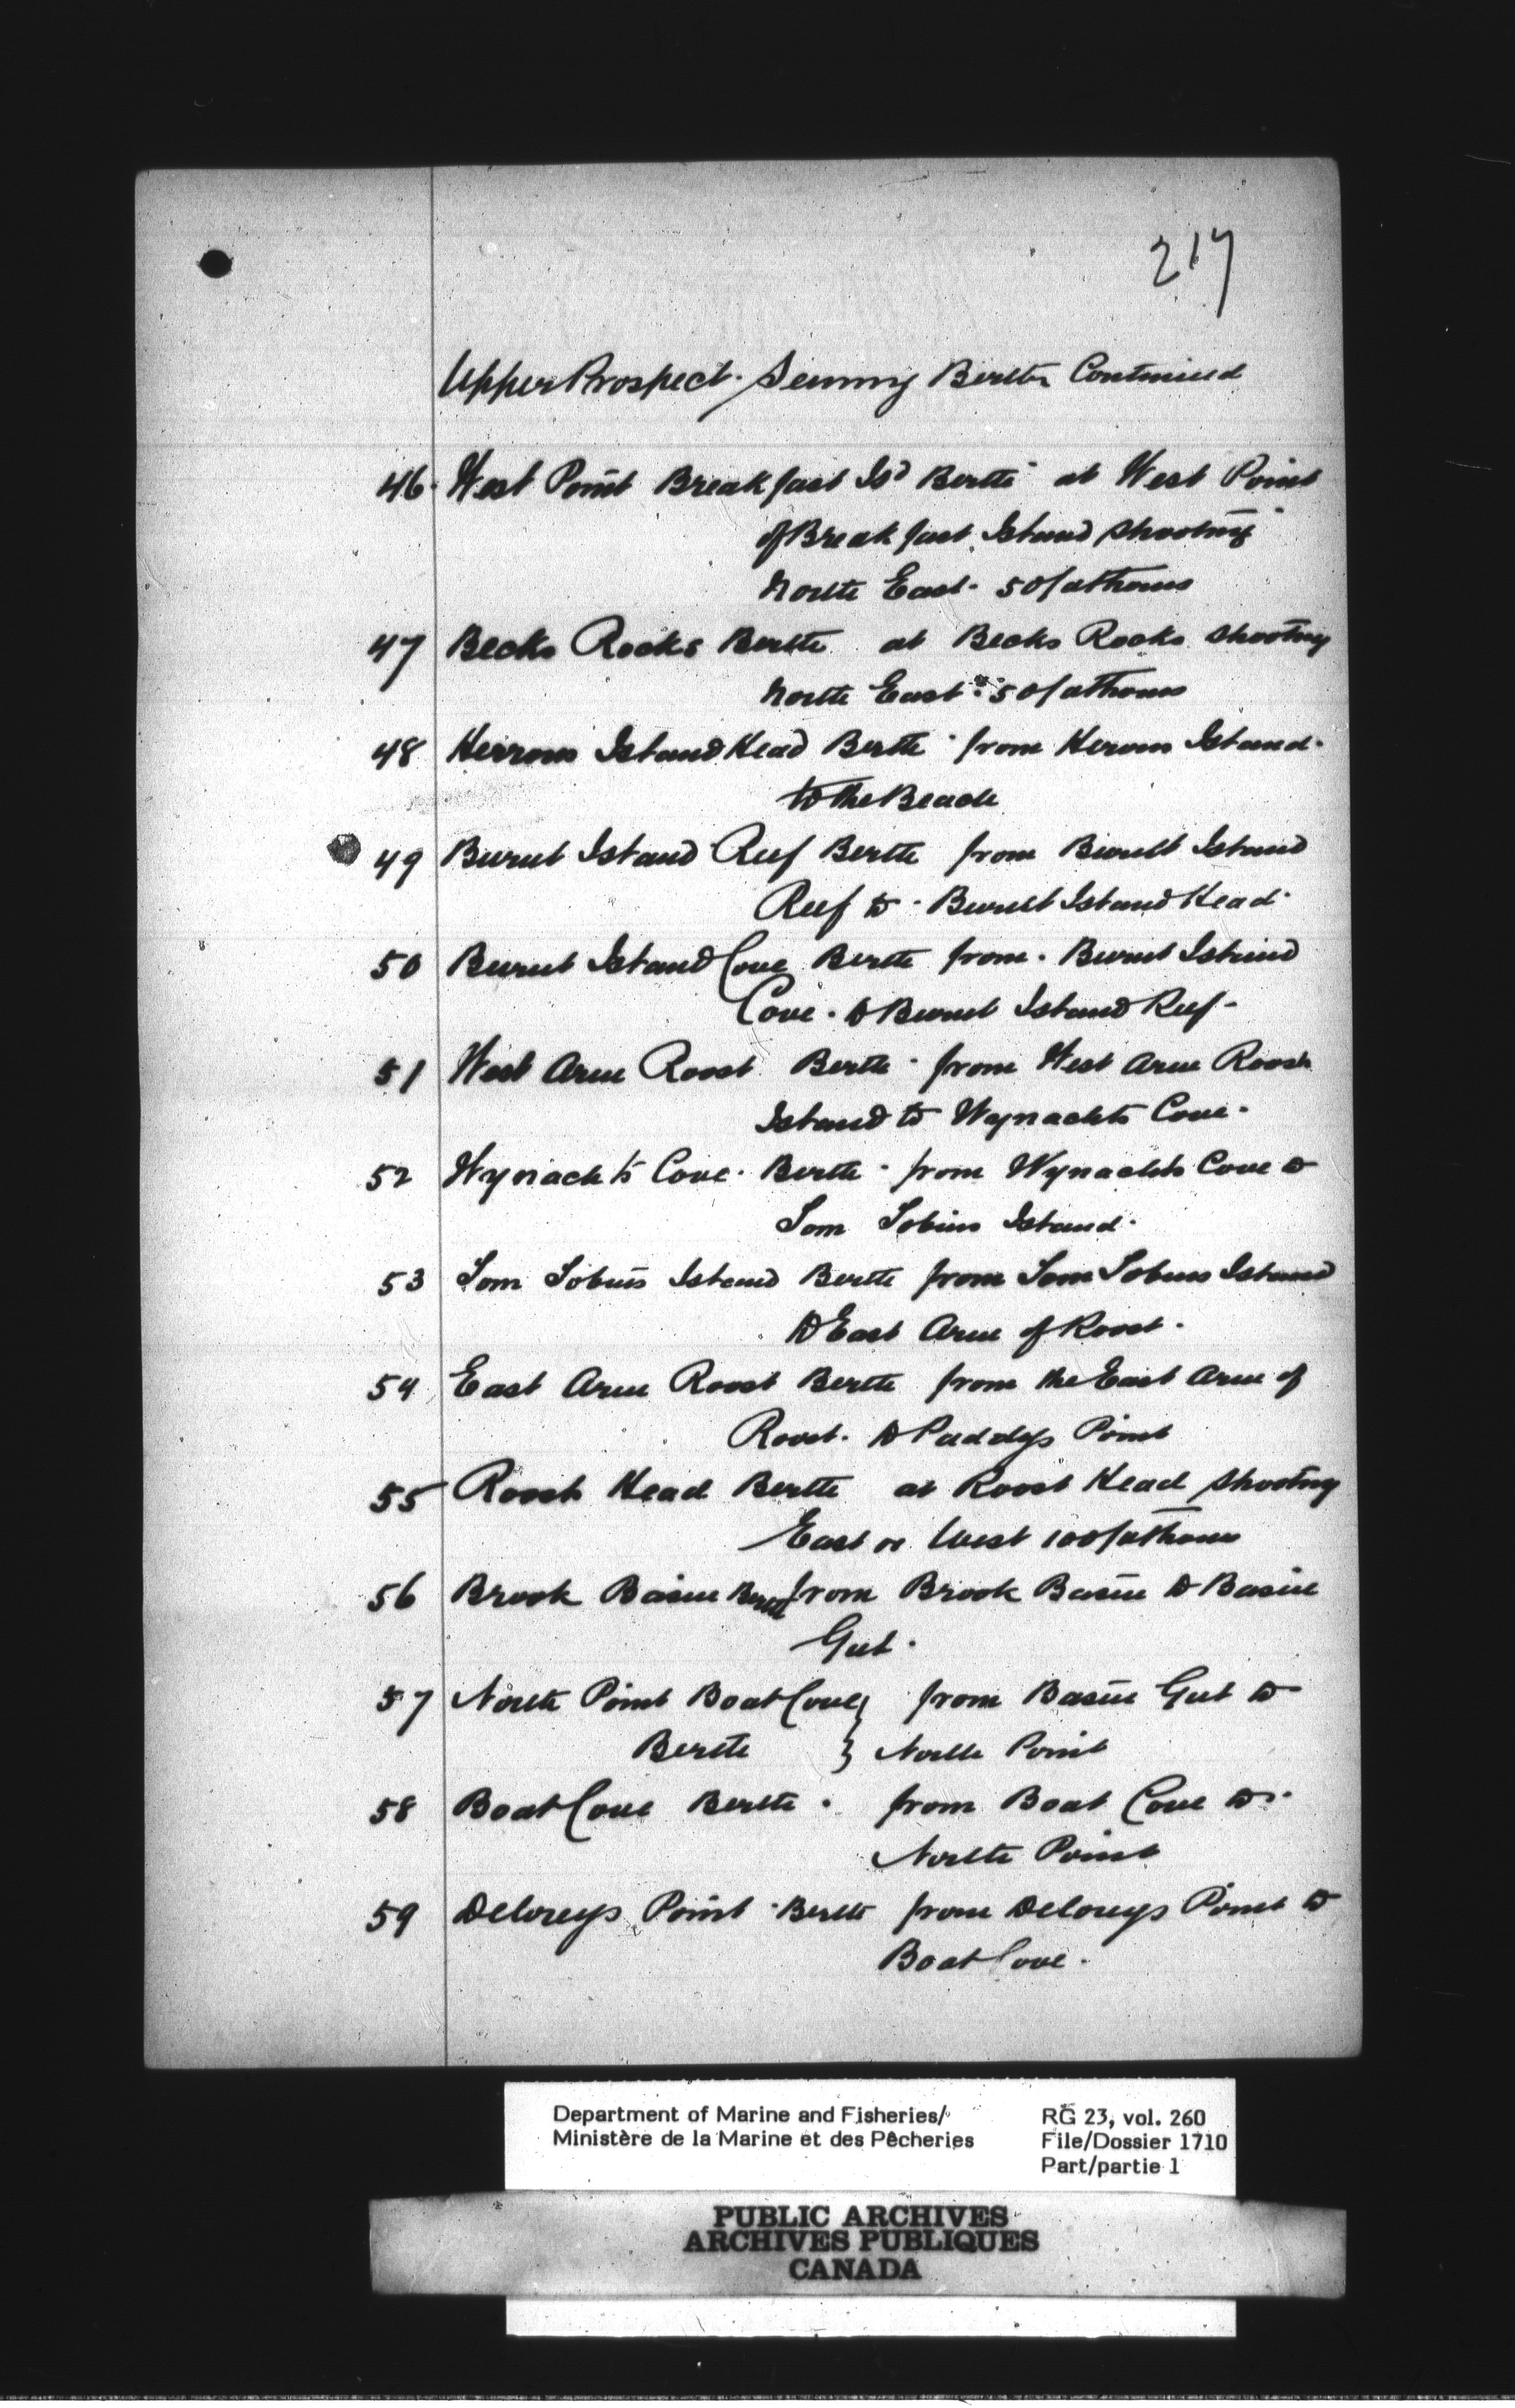 217
Upper Prospect. Seining Berths Continued
46 West Point Breakfast Isd Berth at West Point
of Breakfast Island shooting
North East. 50 fathoms
47 Becks Rocks Berth at Becks Rocks shooting
North East. 50 fathoms
48 Herrons Island Head Berth from Herons Island
to the Beach
49 Burnt Island Reef Berth from Burnt Island
Reef to Burnt Island Head.
50 Burnt Island Cove Berth from Burnt Island
Cove. to Burnt Island Reef.
51 West Arm Roost Berth from West Arm Roost
Island to Wynachts Cove.
52 Wynachts Cove. Berth from Wynachts Cove to
Tom Tobins Island.
53 Tom Tobins Island Berth from Tom Tobins Island
to East Arm of Roost.
54 East Arm Roost Berth from the East Arm of
Roost. to Paddys Point
55 Roost Head Berth at Roost Head shooting
East or West 100 fathoms
56 Brook Basin Berth from Brook Basin to Basin
Gut.
57 North Point Boat Cove } from Basin Gut to
Berth } North Point
58 Boat Cove Berth. from Boat Cove to
North Point
59 Deloreys Point Berth from Deloreys Point to
Boat Cove.
Department of Marine and Fisheries/
Ministère de la Marine et des Pêcheries
RG 23, vol. 260
File/Dossier 1710
Part/partie 1
PUBLIC ARCHIVES
ARCHIVES PUBLIQUES
CANADA